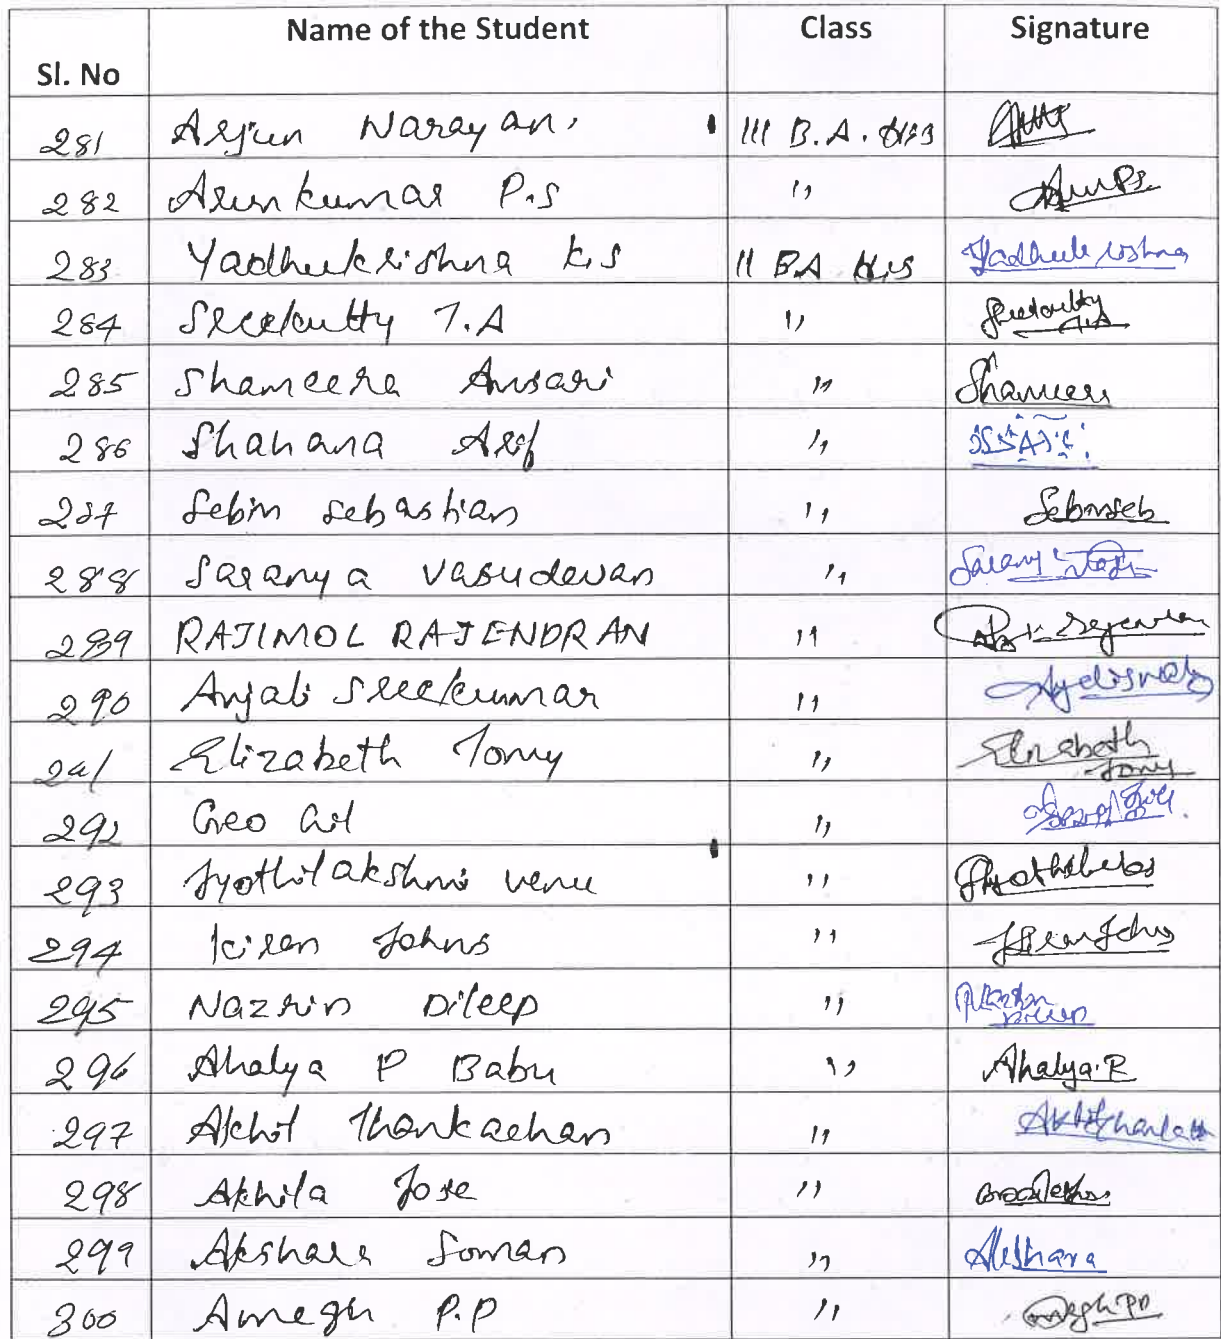 Sl. No Name of the Student Class Signature
281 Arjun Narayan. III B.A. His
282 Arunkumar P.S ,,
283 Yadhukrishna K.S II BA His Yadhukrishna
284 Sreekutty T.A ,, Sreekutty T.A
285 Shameera Ansari ,, Shameera
286 Shahana Arif ,,
287 Sebin Sebastian ,, Sebinseb
288 Saranya Vasudevan ,, Saranya
289 RAJIMOL RAJENDRAN ,,
290 Anjali Sreekumar ,,
291 Elizabeth Tomy ,, Elizabeth Tomy
292 Geo Gil ,,
293 Jyothilakshmi venu ,,
294 Kiren Johns ,, Kiren Johns
295 Nazrin Dileep ,, Nazrin Dileep
296 Ahalya P Babu ,, Ahalya.P
297 Akhil Thankachan ,,
298 Akhila Jose ,,
299 Akshara Soman ,, Akshara
300 Amegh P.P ,, Amegh PP